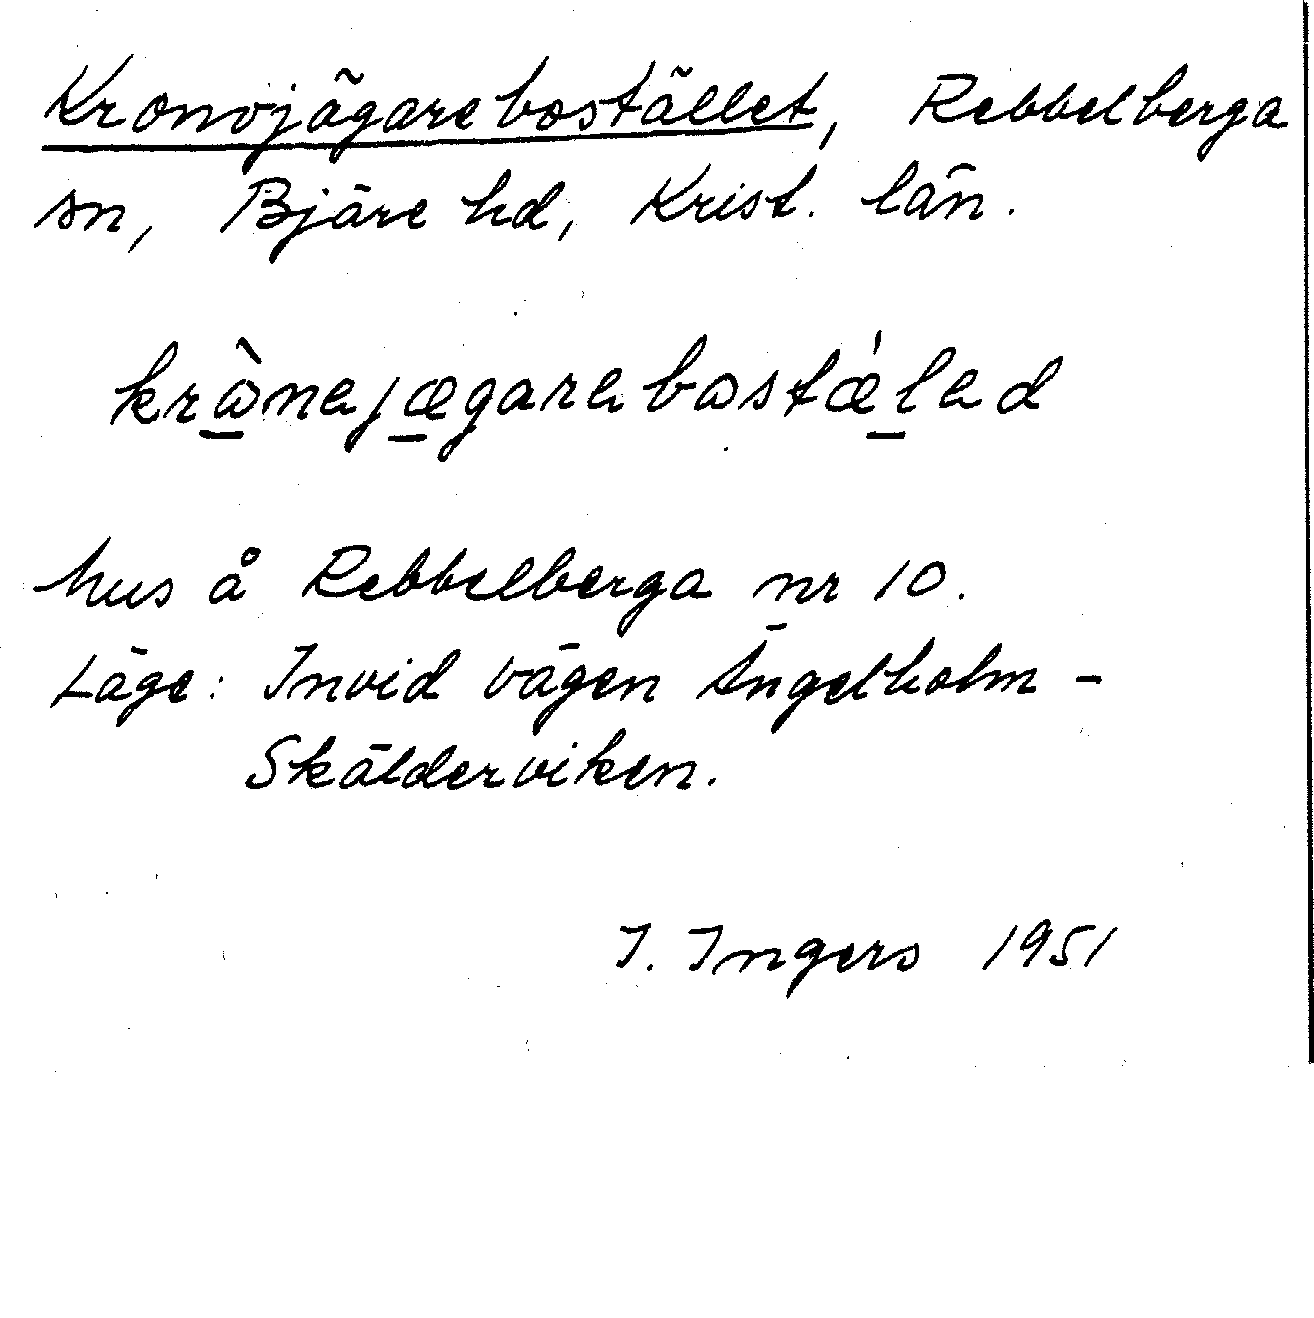 Kronojägarebostället, Rebbelberga
sn, Bjäre hd, Krist. län.
krònejægarebostǽled
hus å Rebbelberga nr 10.
Läge: Invid vägen Ängelholm -
Skälderviken.
I. Ingers 1951